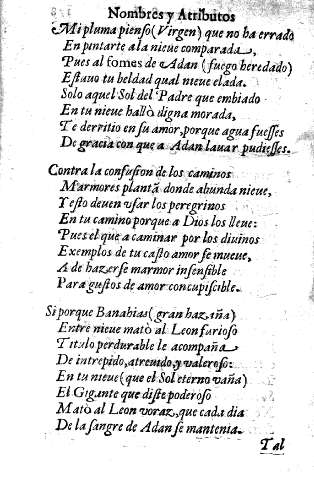 Nombres y Atributos
Mi pluma pienso (Virgen) que no ha errado
En pintarte a la nieue comparada,
Pues al fomes de Adan (fuego heredado)
Estauo tu beldad qual nieue elada.
Solo aquel Sol del Padre que embiado
En tu nieue hallò digna morada,
Te derritio en su amor, porque agua fuesses
De gracia con que a Adan lauar pudiesses.
Contra la confusion de los caminos
Marmores plantã donde abunda nieue,
Y esto deuen vsar los peregrinos
En tu camino porque a Dios los lleue:
Pues el que a caminar por los diuinos
Exemplos de tu casto amor se mueue,
A de hazerse marmor insensible
Para gustos de amor concupiscible.
Si porque Banahias (gran hazaña)
Entre nieue matò al Leon furioso
Titulo perdurable le acompaña
De intrepido, atreuido, y valeroso:
En tu nieue (que el Sol eterno vaña)
El Gigante que diste poderoso
Matò al Leon voraz, que cada dia
De la sangre de Adan se mantenia.
Tal